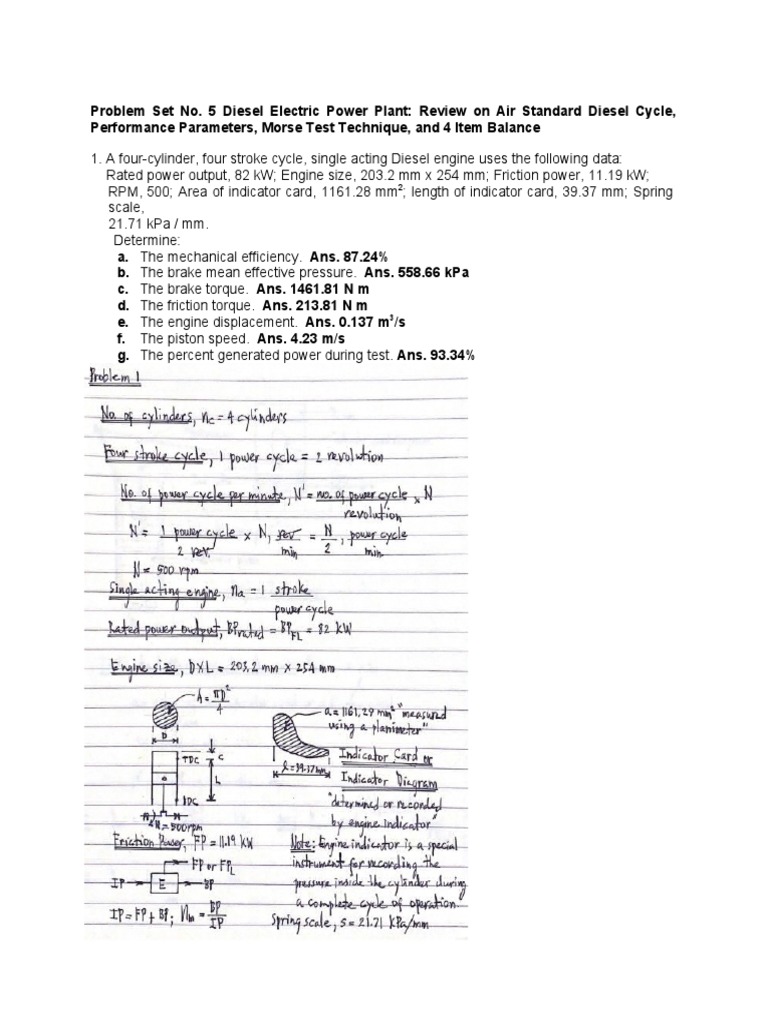 Problem Set No. 5 Diesel Electric Power Plant: Review on Air Standard Diesel Cycle,
Performance Parameters, Morse Test Technique, and 4 Item Balance
1. A four-cylinder, four stroke cycle, single acting Diesel engine uses the following data:
Rated power output, 82 kW; Engine size, 203.2 mm x 254 mm; Friction power, 11.19 kW;
RPM, 500; Area of indicator card, 1161.28 mm²; length of indicator card, 39.37 mm; Spring
scale,
21.71 kPa / mm.
Determine:
a. The mechanical efficiency. Ans. 87.24%
b. The brake mean effective pressure. Ans. 558.66 kPa
c. The brake torque. Ans. 1461.81 N m
d. The friction torque. Ans. 213.81 N m
e. The engine displacement. Ans. 0.137 m³/s
f. The piston speed. Ans. 4.23 m/s
g. The percent generated power during test. Ans. 93.34%
Problem 1
No. of cylinders, nc = 4 cylinders
Four stroke cycle, 1 power cycle = 2 revolution
No. of power cycle per minute, N' = no. of power cycle x N
revolution
N' = 1 power cycle x N, rev = N , power cycle
2 rev. min 2 min
N = 500 rpm
Single acting engine, na = 1 stroke
power cycle
Rated power output, BPrated = BPFL = 82 kW
Engine size, DXL = 203.2 mm x 254 mm
A = πD²
4
D
TDC C
L
BDC
N = 500rpm
a = 1161.29 mm² "measured
using a planimeter"
l = 39.37mm
Indicator Card or
Indicator Diagram
"determined or recorded
by engine indicator"
Friction Power, FP = 11.19 kW
FP or FPL
IP E BP
IP = FP + BP; ηm = BP
IP
Note: Engine indicator is a special
instrument for recording the
pressure inside the cylinder during
a complete cycle of operation.
Spring scale, s = 21.71 kPa/mm